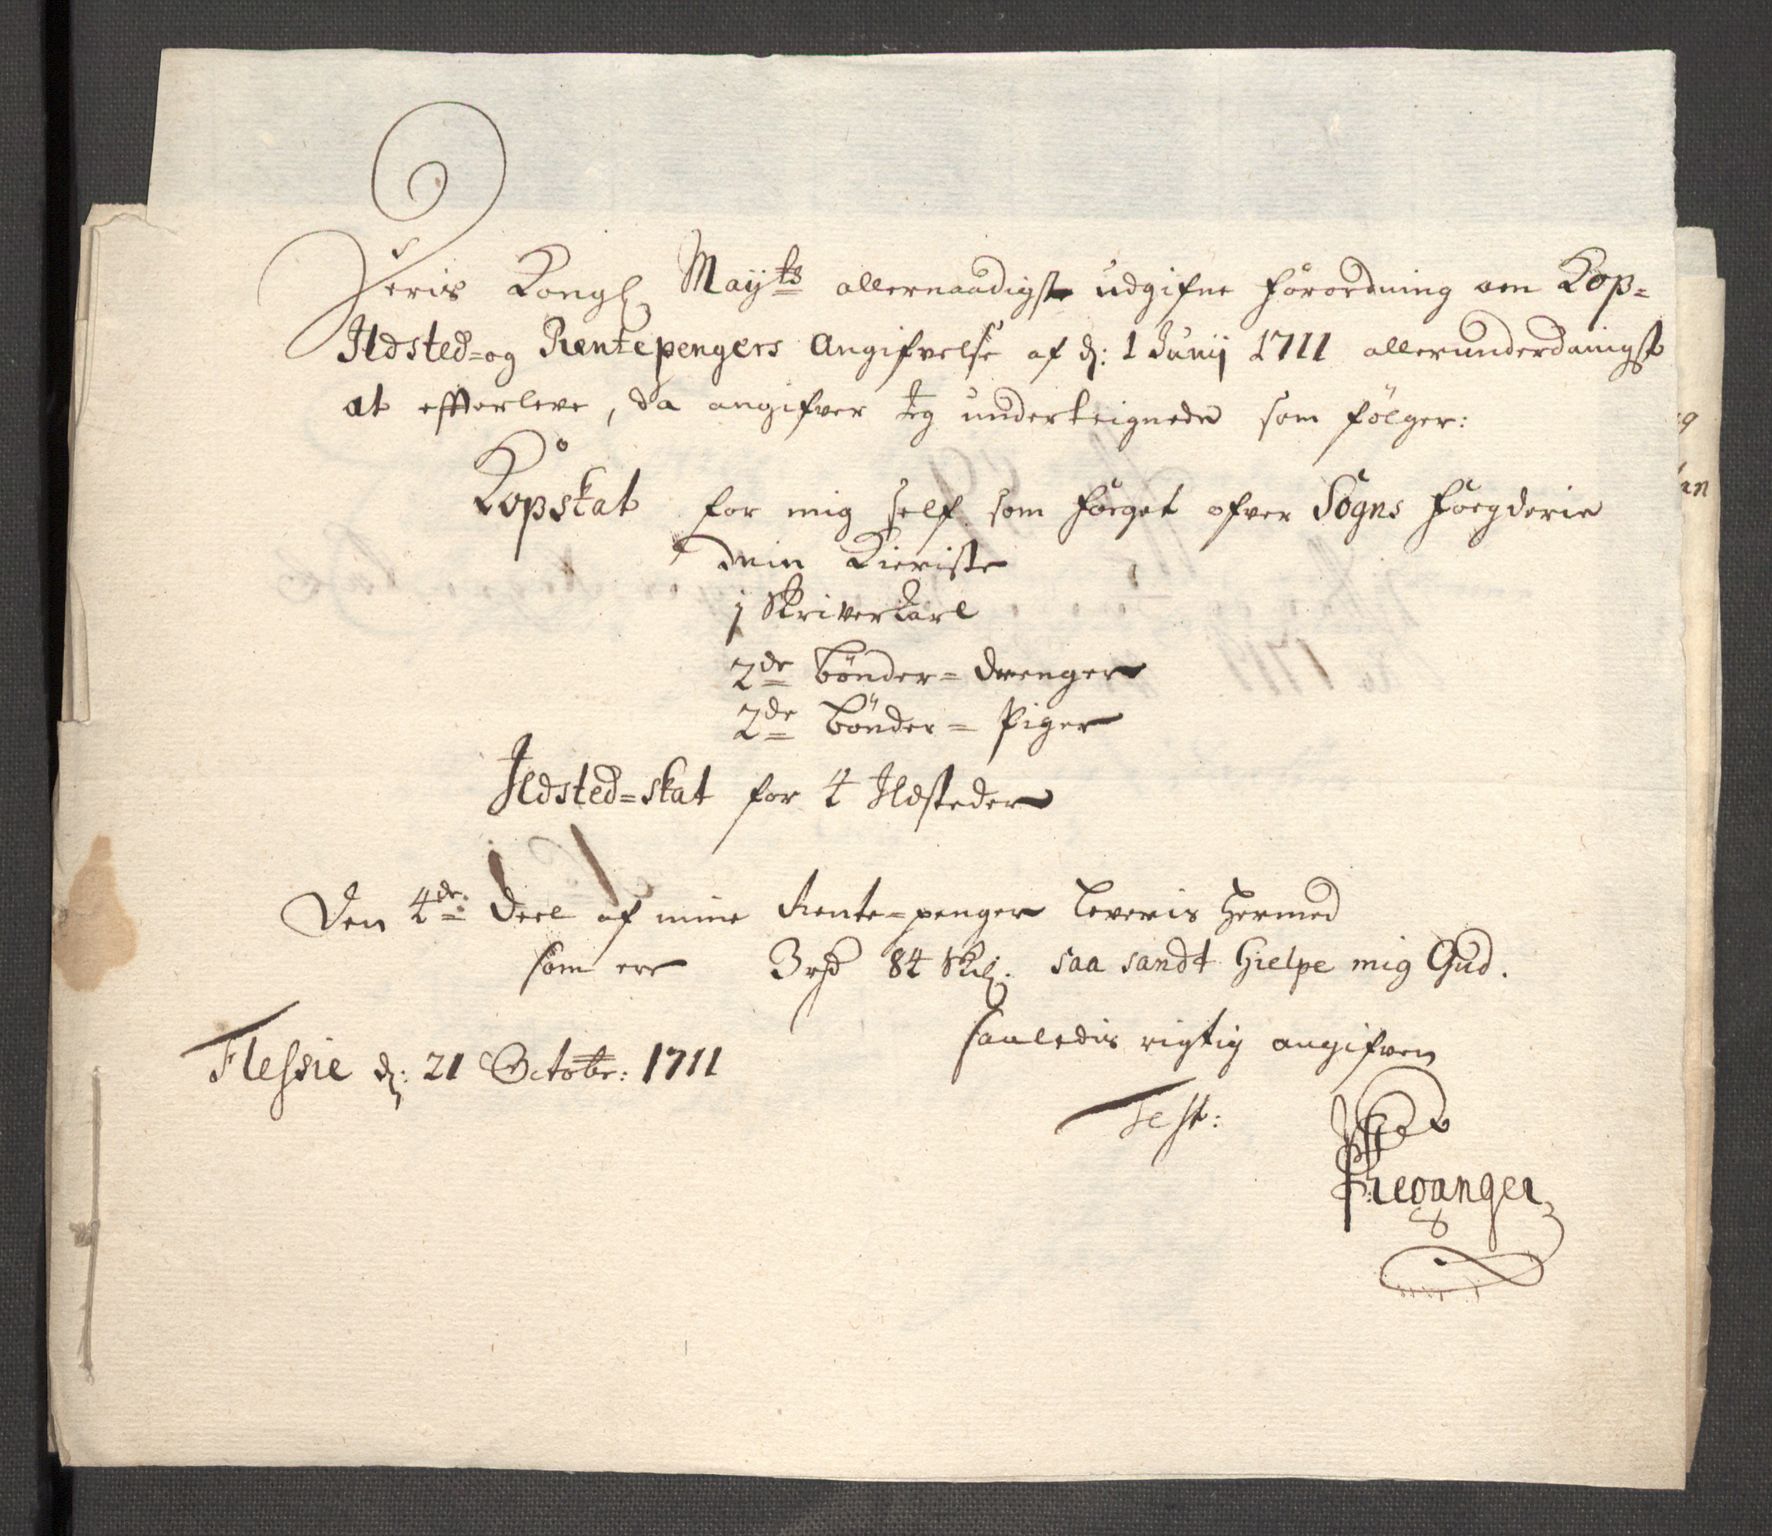 Heris Kongl Mayts allernaadigst udgifne forordning om Kop=
Ildsted=og Rentepengers Angifvelse af d: 1 Junij 1711 allerunderdanigst
at efterleve, da angifver Jeg underteignede som følger:
Kopskat for mig self som fouget ofver Sogns fougderie
min Kieriste
1 Skriverkarl
2de bønder=drenger
2de bønder=Piger
Ildsted=skat for 4 Ildsteder
Den 4de: Deel af mine Rente=penger leveris hermed
som ere 3 rd 84 Skl: saa sandt hielpe mig Gud.
saaledis rigtig angifven
Flessie d: 21 Octobr: 1711
Test: